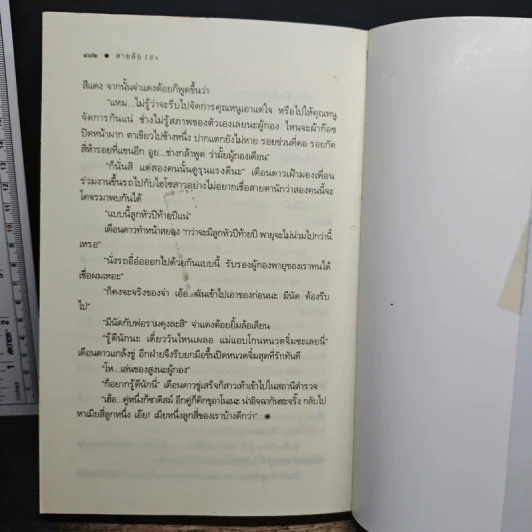 ๔๗๒ ● สายลับ 18+
สีแดง จากนั้นจ่าแดงต้อยก็พูดขึ้นว่า
"แหม...ไม่รู้ว่าจะรีบไปจัดการคุณหนูเอาแต่ใจ หรือไปให้คุณหนู
จัดการกันแน่ ช่างไม่รู้สภาพของตัวเองเลยนะผู้กอง ไหนจะผ้าก๊อซ
ปิดหน้าผาก ตาเขียวไปข้างหนึ่ง ปากแตกยังไม่หาย รอยข่วนที่คอ รอยกัด
สี่ห้ารอยที่แขนอีก อูย...ช่างกล้าพูด ว่ามั้ยผู้กองเดือน"
"ก็นั่นสิ แต่สองคนนั้นดูรุนแรงดีนะ" เดือนดาวเฝ้ามองเพื่อน
ร่วมงานขึ้นรถไปกับไฮโซสาวอย่างไม่อยากเชื่อสายตานักว่าสองคนนี้จะ
โคจรมาพบกันได้
"แบบนี้ลูกหัวปีท้ายปีแน่"
เดือนดาวทำหน้าสยอง "กว่าจะมีลูกหัวปีท้ายปี พายุจะไม่น่วมไปกว่านี้
เหรอ"
"นั่งรถอี๋อ๋อออกไปด้วยกันแบบนี้ รับรองผู้กองพายุของเราทนได้
เชื่อผมเหอะ"
"ก็คงจะจริงของจ่า เอ้อ...ฉันเข้าไปเอาของก่อนนะ มีนัด ต้องรีบ
ไป"
"มีนัดกับพ่อรามคุงละสิ" จ่าแดงต้อยยิ้มล้อเลียน
"รู้ดีนักนะ เดี๋ยววันไหนเผลอ แม่แอบโกนหนวดจิ๋มซะเลยนี่"
เดือนดาวแกล้งขู่ อีกฝ่ายจึงรีบยกมือขึ้นปิดหนวดจิ๋มสุดที่รักทันที
"โห...เล่นของสูงนะผู้กอง"
"ก็อยากรู้ดีนักนี่" เดือนดาวขู่เสร็จก็สาวเท้าเข้าไปในสถานีตำรวจ
"เฮ้อ...คู่หนึ่งก็ซาดิสม์ อีกคู่ก็คิกขุอาโนเนะ น่าอิจฉากันซะจริ๊ง กลับไป
หาเมียสี่ลูกหนึ่ง เอ๊ย! เมียหนึ่งลูกสี่ของเราบ้างดีกว่า" ◉